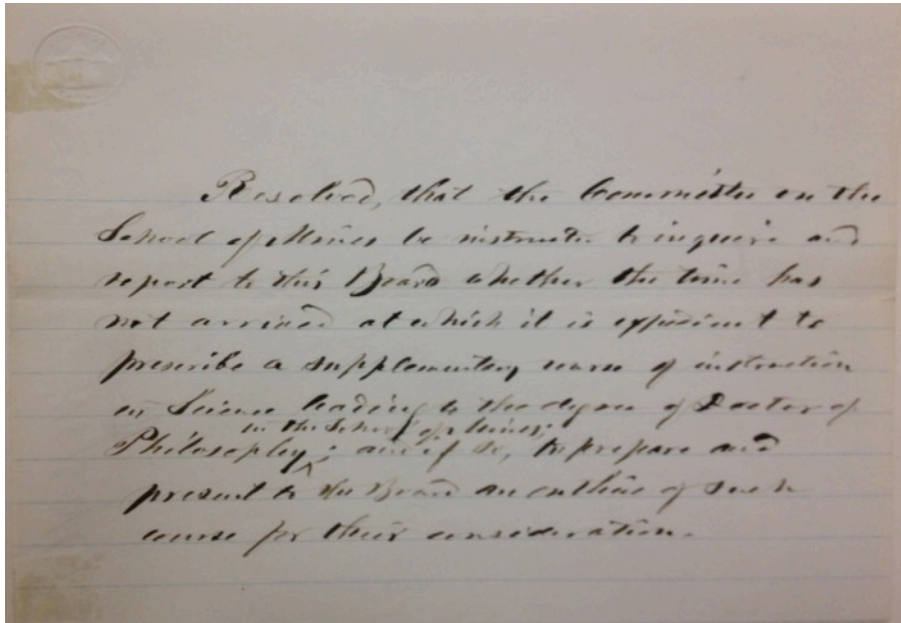 Resolved, that the Committee on the
School of Mines be instructed to inquire and
report to this Board whether the time has
not arrived at which it is expedient to
prescribe a supplementary course of instruction
in Science leading to the degree of Doctor of
in the School of Mines;
Philosophy; and if so, to prepare and
present to the Board an outline of such
course for their consideration.